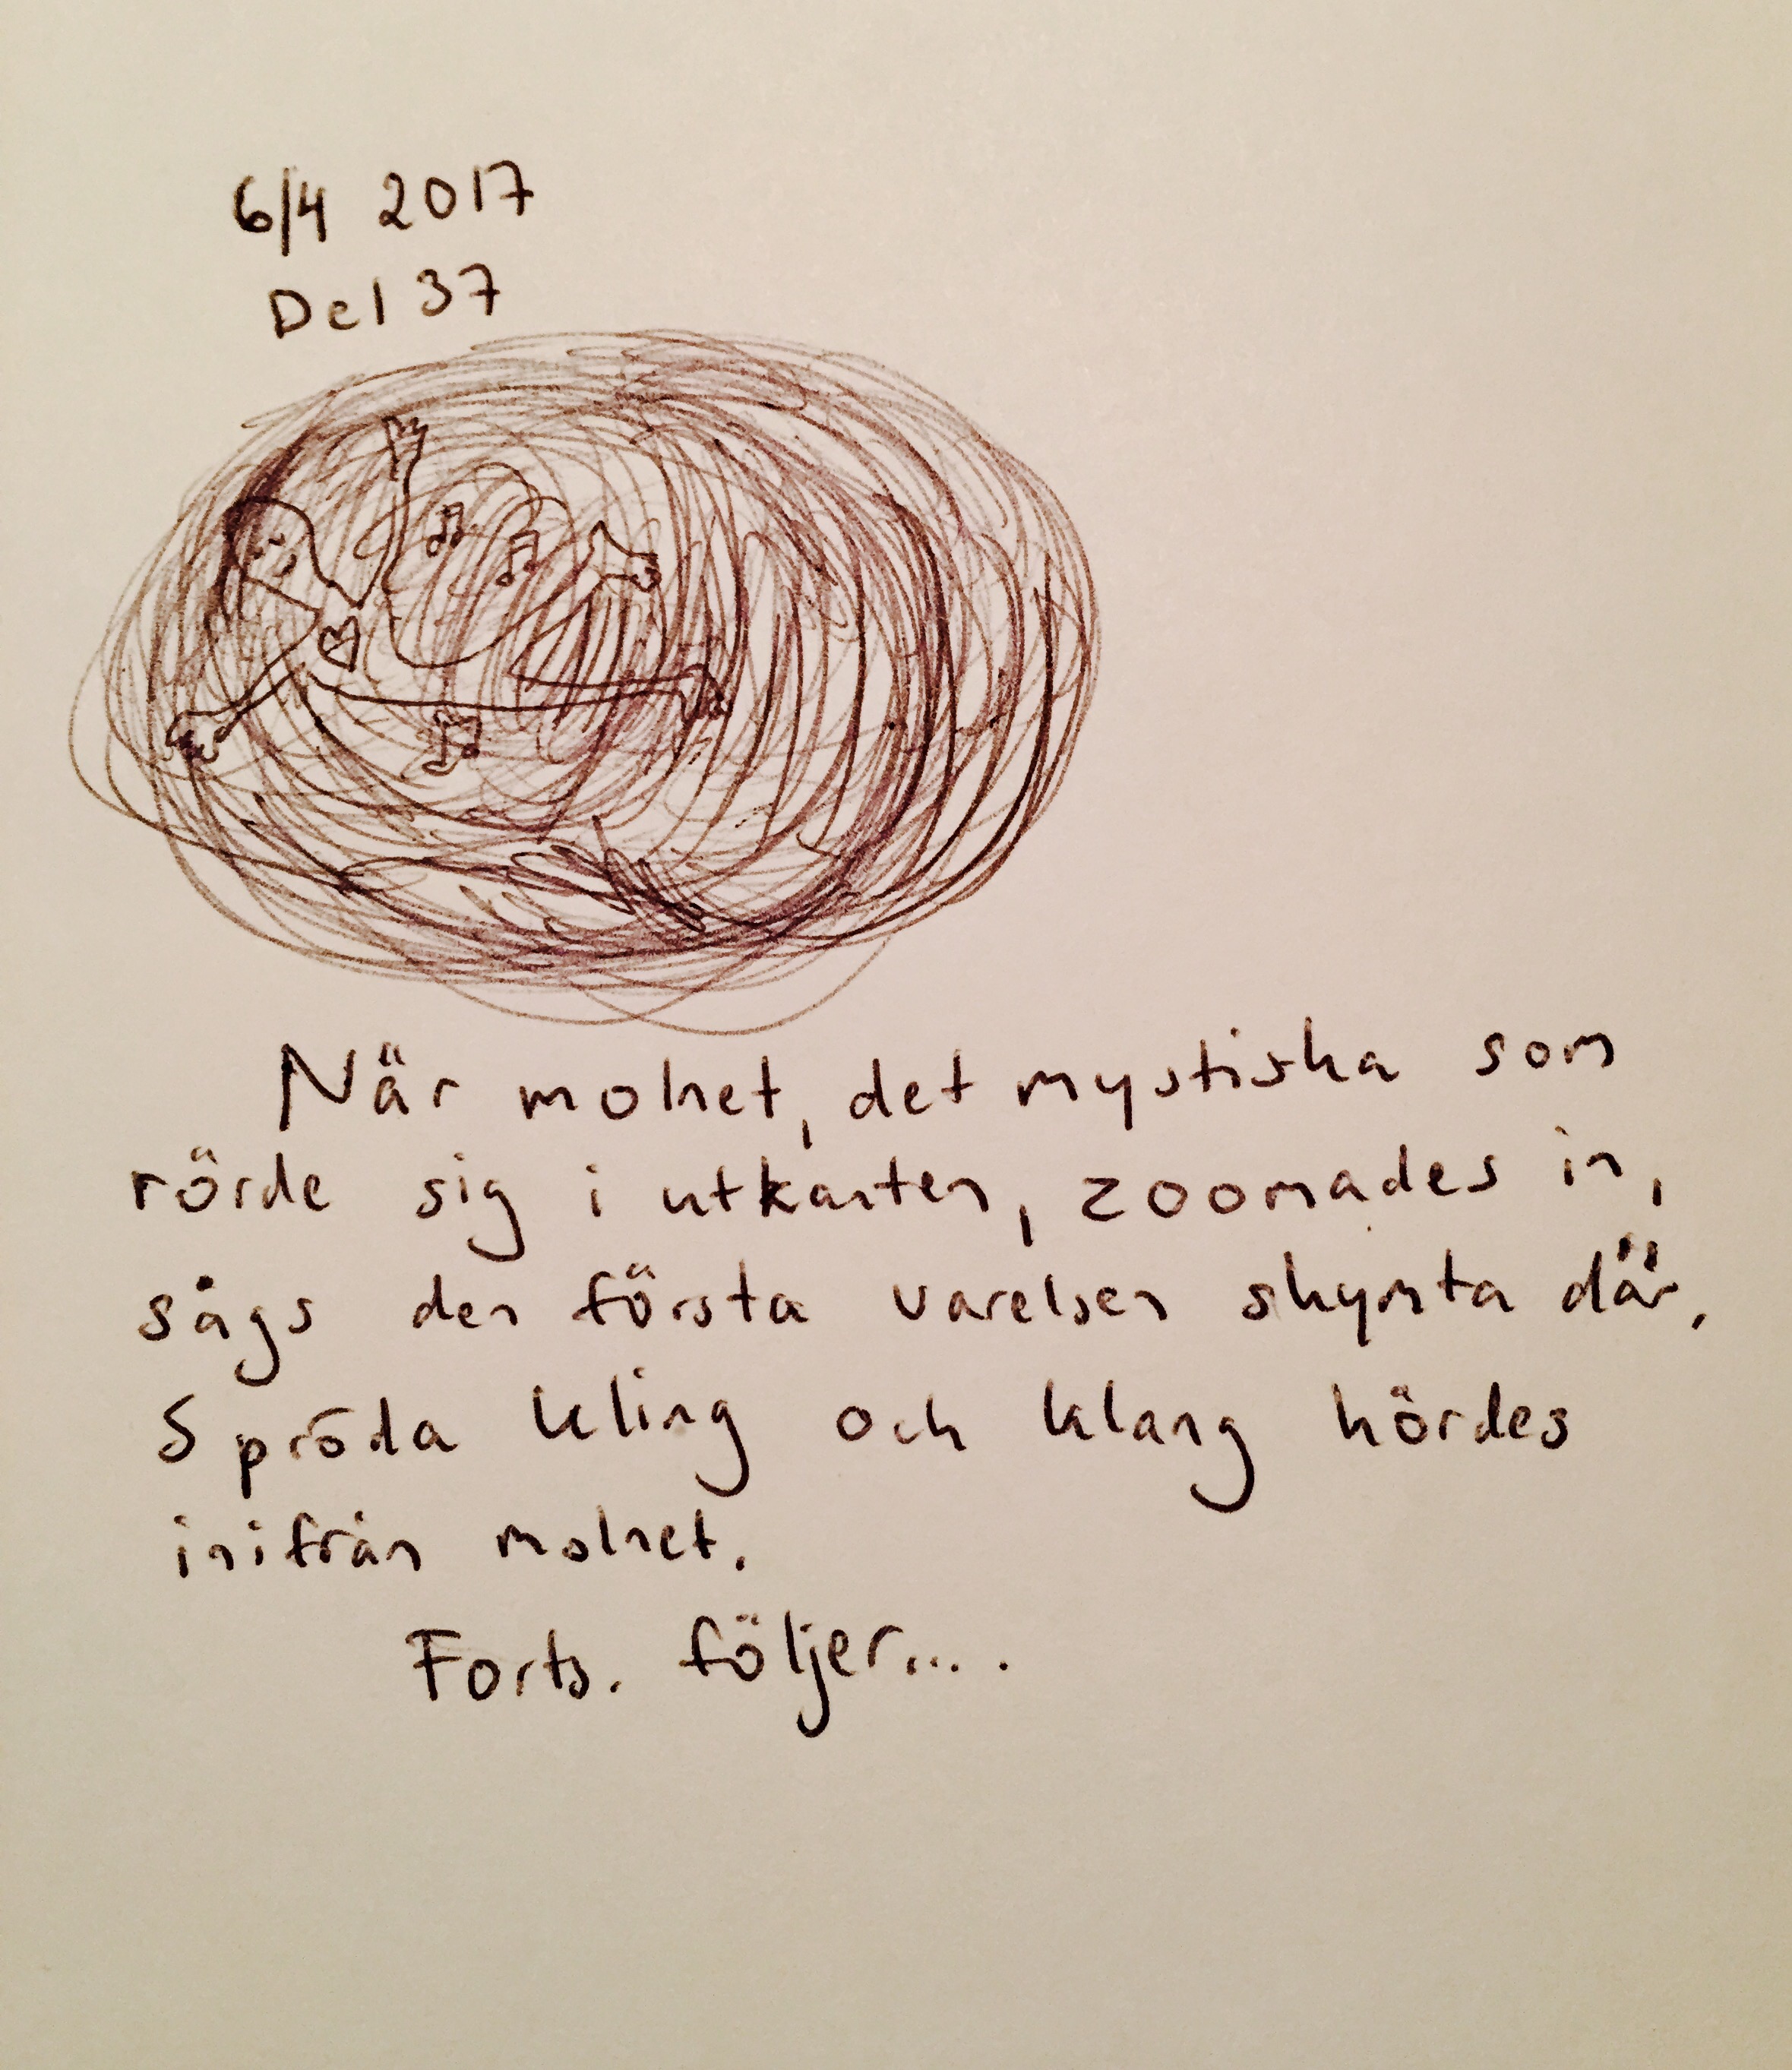 6/4 2017
Del 37
När molnet, det mystiska som
rörde sig i utkanten, zoomades in,
sågs den första varelsen skymta där.
Spröda kling och klang hördes
inifrån molnet.
Forts. följer....